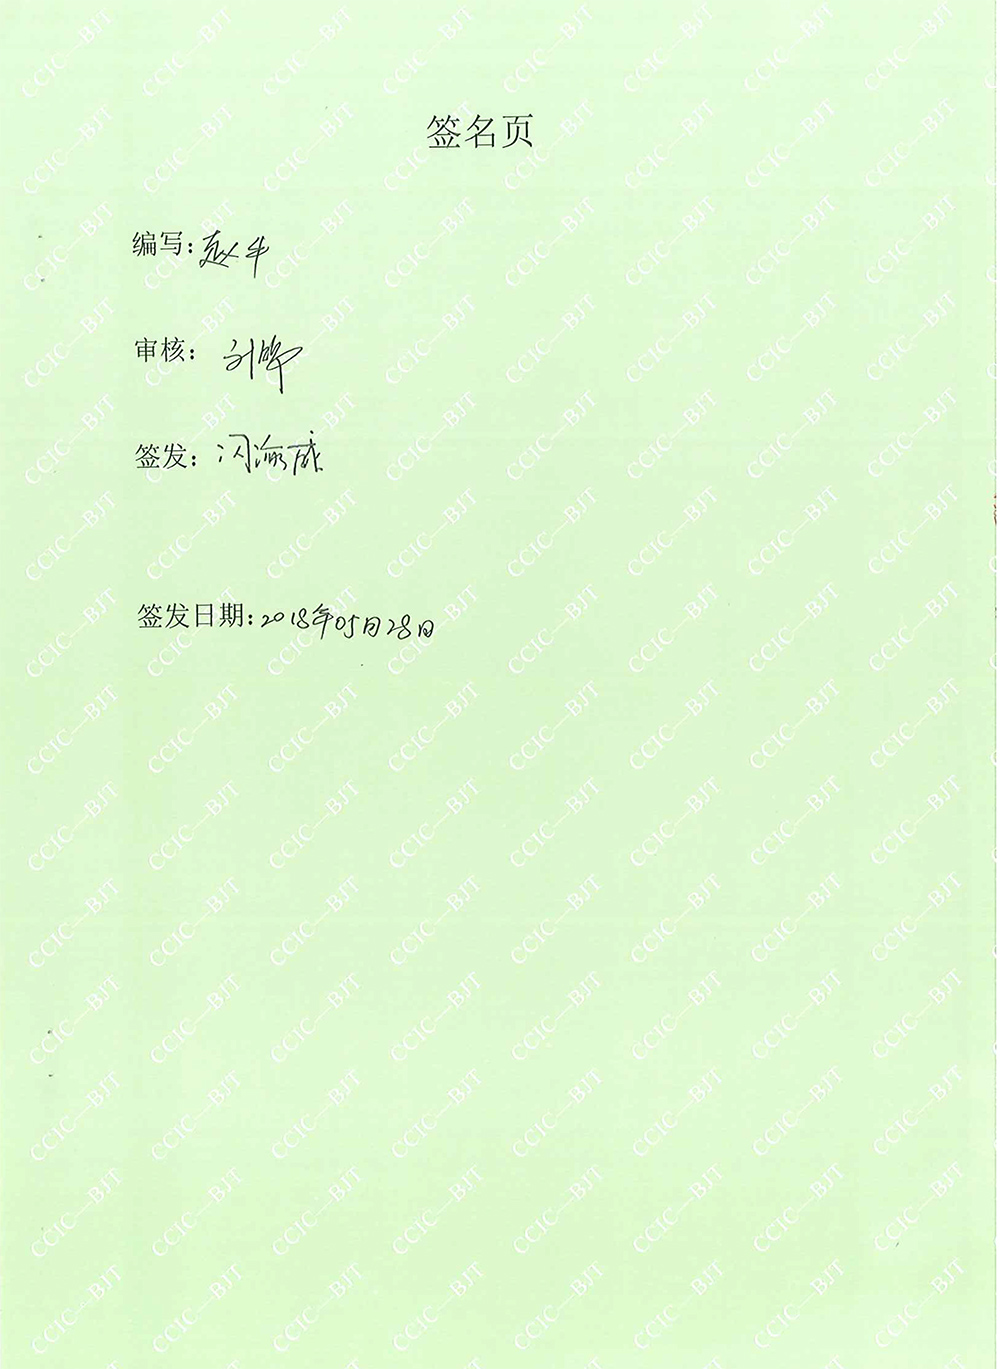 签名页
编写:赵牛
审核: 刘
签发: 闪
签发日期:2018年05月28日
CCIC—BJT